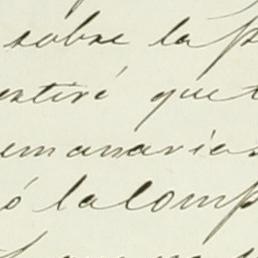 sobre la p
stiré que
emanarias
ó la comp